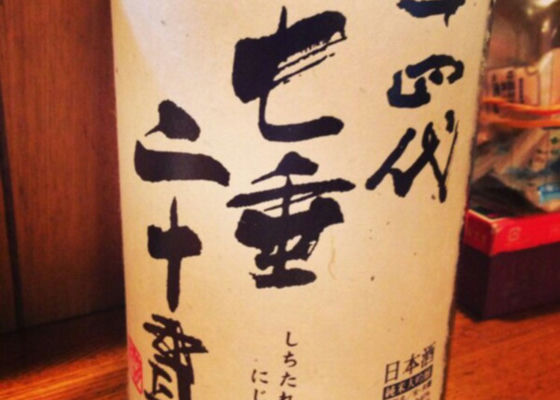 十四代
七垂
二十貫
しちたれ
にじ
日本酒
純米大吟醸